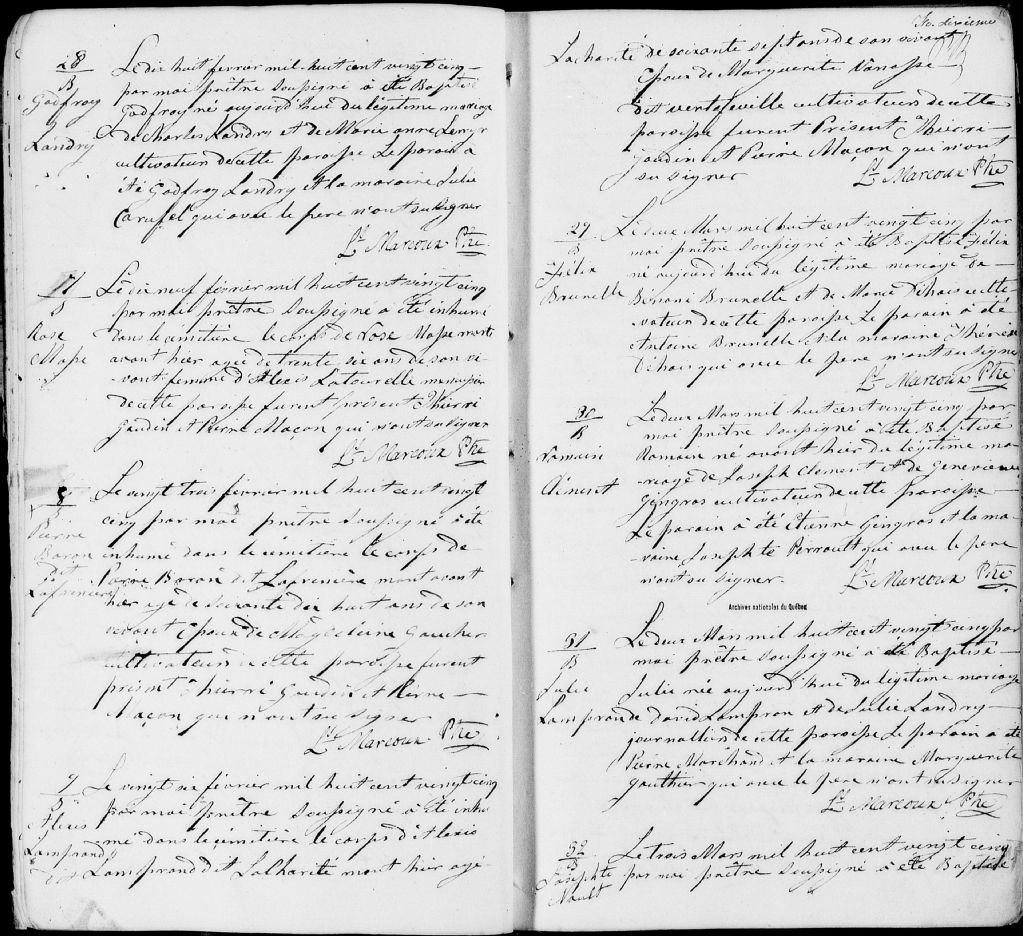 28
B
Godfroy
Landry
Le dix huit février mil huit cent vingt cinq
par moi prêtre soussigné a été Baptisé
Godfroy né aujourd'hui du légitime mariage
de Charles Landry et de Marie anne
cultivateur de cette paroisse Le parain a
été Godfroy Landry et la maraine Julie
Carufel qui avec le pere n'ont su signer
Lt Marcoux Ptre
S
Rose
Masse
Le dix neuf février mil huit cent vingt cinq
par moi prêtre soussigné a été inhumé
dans le cimitière le corps de Rose Masse morte
avant hier agée de trente six ans de son vi-
vant femme d'Alexis Latourelle
de cette paroisse furent présent Thierri
Gaudin et Pierre Maçon qui n'ont su signer
Lt Marcoux Ptre
8
S
Pierre
Baron
dit
Lafrenière
Le vingt trois février mil huit cent vingt
cinq par moi prêtre soussigné a été
inhumé dans le cimitière le corps de
Pierre Baron dit Lafrenière mort avant
hier agé de soixante dix huit ans de son
vivant Epoux de Magdeleine Gaucher
cultivateur de cette paroisse furent
présent Thierri Gaudin et Pierre
Maçon qui n'ont su signer
Lt Marcoux Ptre
9
S
Alexis
Lamprond
dit
Le vingt six février mil huit cent vingt cinq
par moi prêtre soussigné a été inhu
mé dans le cimitière le corps d'Alexis
Lamprond dit Lacharité mort hier agé
fo. dixieme
Lacharité de soixante sept ans de son vivant
Epoux de Marguerite Vanasse
dit vertefeuille cultivateur de cette
paroisse furent Présent Thierri
Gaudin et Pierre Maçon qui n'ont
su signer
Lt Marcoux Ptre
29
B
Félix
Brunelle
Le deux Mars mil huit cent vingt cinq par
moi prêtre soussigné a été Baptisé Félix
né aujourd'hui du légitime mariage de
Brunelle et de Marie Dehais culti-
vateur de cette paroisse Le parain a été
Antoine Brunelle et la maraine Thérèse
Dehais qui avec le pere n'ont su signer
Lt Marcoux Ptre
30
B
Romain
Clément
Le deux Mars mil huit cent vingt cinq par
moi prêtre soussigné a été Baptisé
Romain né avant hier du légitime ma-
riage de Joseph Clement et de Genevieve
Gingros cultivateur de cette paroisse
Le parain a été Etienne Gingros et la ma-
raine Josephte Perrault qui avec le pere
n'ont su signer.
Lt Marcoux Ptre
Archives nationales du Québec
31
B
Julie
Lampron
Le deux Mars mil huit cent vingt cinq par
moi prêtre soussigné a été Baptisé
Julie née aujourd'hui du légitime mariage
de david Lampron et de Julie Landry
journallier de cette paroisse Le parain a été
Pierre Marchand et la maraine Marguerite
Gauthier qui avec le pere n'ont su signer
Lt Marcoux Ptre
32
B
Josephte
Nault
Le trois Mars mil huit cent vingt cinq
par moi prêtre soussigné a été Baptisée